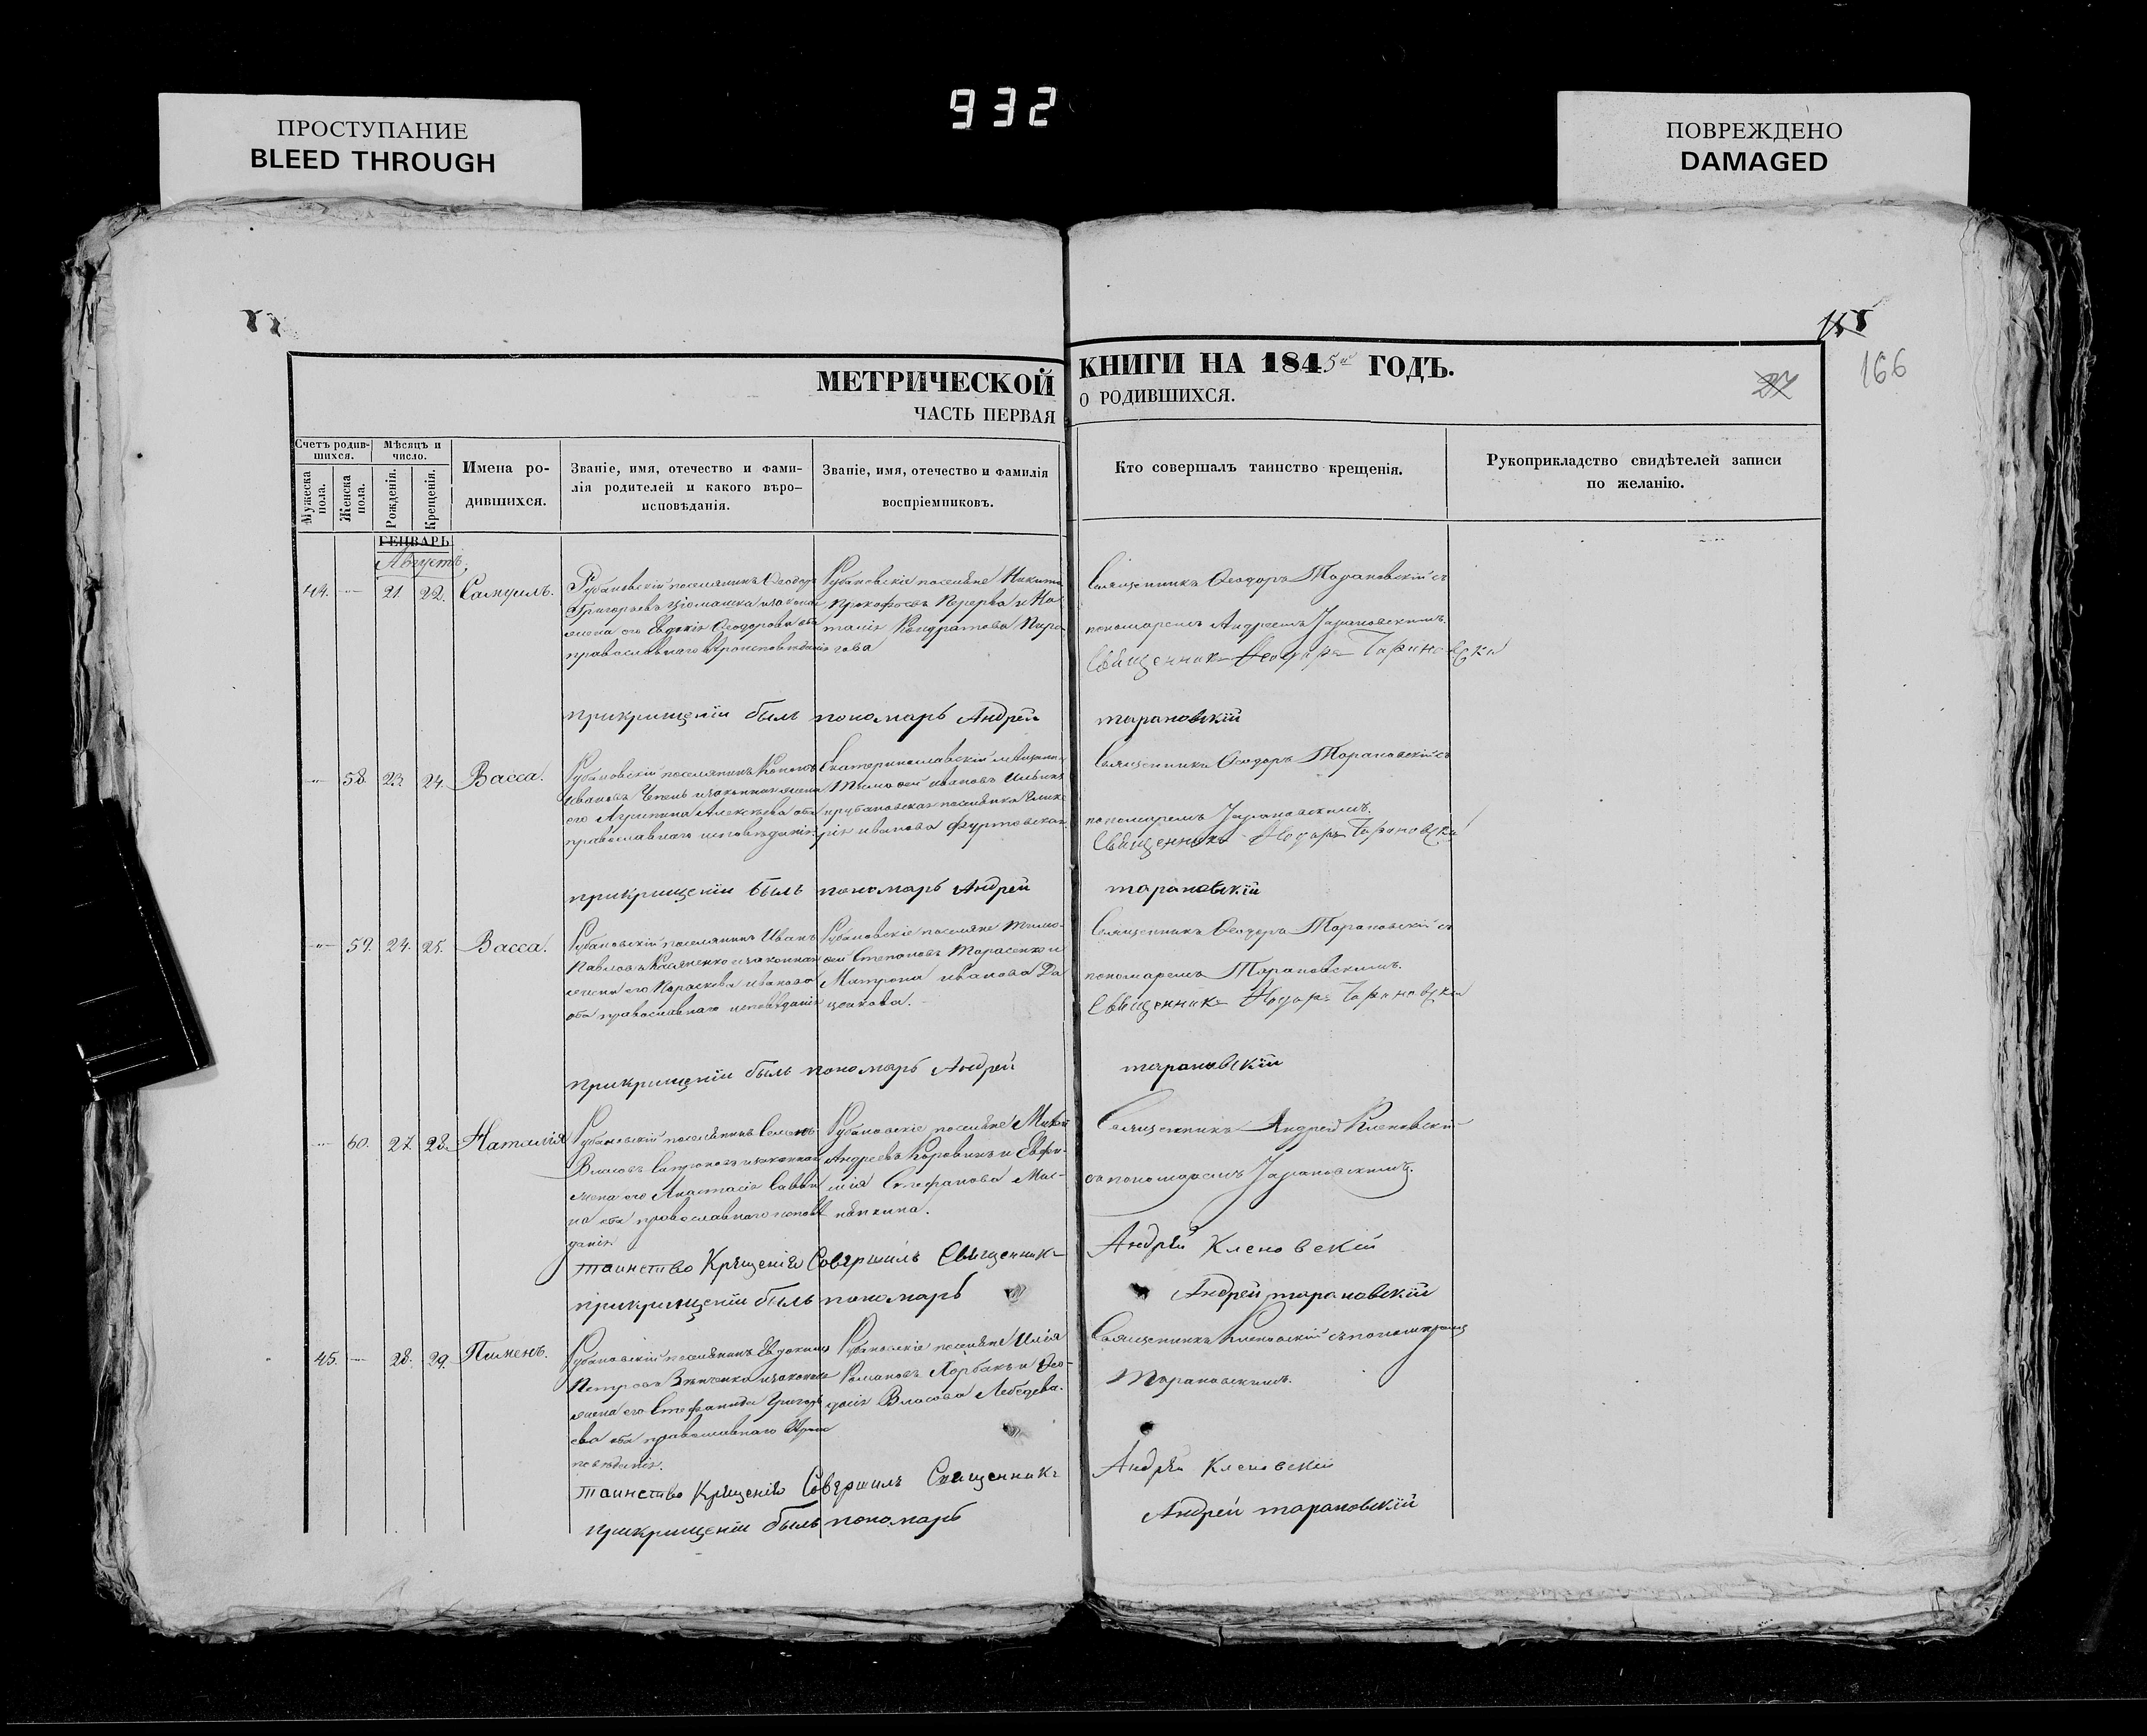 932
ПРОСТУПАНИЕ
BLEED THROUGH
ПОВРЕЖДЕНО
DAMAGED
166
МЕТРИЧЕСКОЙ КНИГИ НА 1845 ГОДЪ.
ЧАСТЬ ПЕРВАЯ О РОДИВШИХСЯ.
Счетъ родив-
шихся.
Мужеска
пола.
Женска
пола.
Мѣсяцъ и
число.
Рожденія.
Крещенія.
Имена ро-
дившихся.
Званіе, имя, отечество и фами-
лія родителей и какого вѣро-
исповѣданія.
Званіе, имя, отечество и фамилія
воспріемниковъ.
Кто совершалъ таинство крещенія.
Рукоприкладство свидѣтелей записи
по желанію.
ГЕНВАРЬ
Августъ.
44. 21. 22. Самуилъ.
Рубановскій поселянинъ Ѳеодоръ
Григорьевъ законная
жена его Евдокія Ѳеодорова оба
православнаго вѣроисповѣданія
Рубановскіе поселяне Никита
Прокофьевъ Перерва и На
талія Кондратова Пиро-
гова
Священникъ Ѳеодоръ Тарановскій съ
пономаремъ Андреемъ Тарановскимъ.
Священникъ Ѳеодоръ Тарановскій
прикрищеніи былъ пономарь Андрей тарановскій
58. 23. 24. Васса.
Рубановскій поселянинъ
Ивановъ законная жена
его Агрипина Алексѣева оба
православнаго исповѣданія
Екатеринославскій мѣщанинъ
Тимоѳей Ивановъ Ильинъ
ирубановская поселянка Глике
рія иванова
Священникъ Ѳеодоръ Тарановскій съ
пономаремъ Тарановскимъ.
Священникъ Ѳеодоръ Тарановскій
прикрищеніи былъ пономарь Андрей тарановскій
59. 24. 25. Васса.
Рубановскій поселянинъ Иванъ
Павловъ изаконная
жена его Параскева иванова
оба православнаго исповѣданія
Рубановскіе поселяне Тимо-
ѳей Степановъ Тарасенко и
Матрона иванова Да
Священникъ Ѳеодоръ Тарановскій съ
пономаремъ Тарановскимъ.
Священникъ Ѳеодоръ Тарановскій
прикрищеніи былъ пономарь Андрей тарановскій
60. 27. 28. Наталія
Рубановскій поселянинъ Семенъ
Власовъ изаконная
жена его Анастасія Савви
на оба православнаго исповѣ
данія.
Рубановскіе поселяне
Андреевъ Коровинъ и Евфи-
мія Стефанова
Священникъ Андрей Кленовскій
со пономаремъ Тарановскимъ.
таинство Крещенія Совершилъ Священникъ Андрей Кленовскій
прикрищеніи былъ пономарь Андрей тарановскій
45. 28. 29. Пименъ.
Рубановскій поселянинъ Евдокимъ
Петровъ изаконная
жена его Стефанида Григорь
ева оба православнаго вѣрои
повѣданія.
Рубановскіе поселяне Илія
Романовъ Горбань и Ѳео-
досія Власова Лебедева.
Священникъ Кленовскій съ пономаремъ
Тарановскимъ.
таинство Крещенія Совершилъ Священникъ Андрей Кленовскій
прикрищеніи былъ пономарь Андрей тарановскій